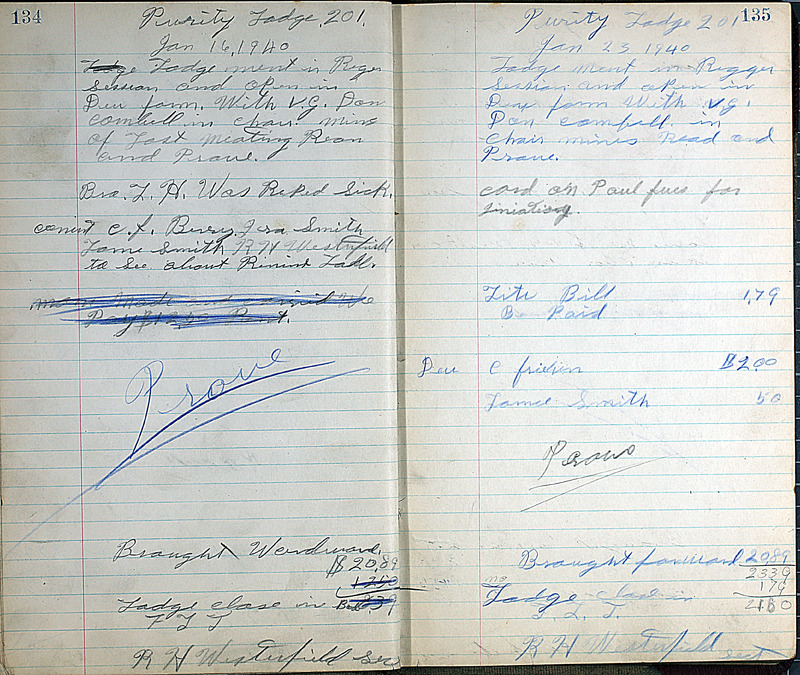 134
Purity Lodge, 201.
Jan 16, 1940
Lodge ment in Reger
Session and open in
Deu form. With V.G. Don
combell in chair. mins
of Last meating Rean
and Prove.
Bro. L. H. Was Reked Sick.
comit C. f. Berry, Jra Smith
Jame Smith R H Westerfield
to See about Rinint Hall.
Prove
Brought
$20,89
Lodge close in
F L T
R H Westerfield Sec
135
Purity Lodge 201
Jan 23, 1940
Lodge ment in Regger
Session and open in
Deu form With V.G.
Don combell in
Chair mines Read and
Prove.
card on Paul fues for
iniation.
Lite Bill 1,79
B Paid
Deu C frieson $2.00
Jame Smith 50
Provo
Brought forward 20,89
2339
179
Lodge close in 2160
F. L. T.
R H Westerfield sect